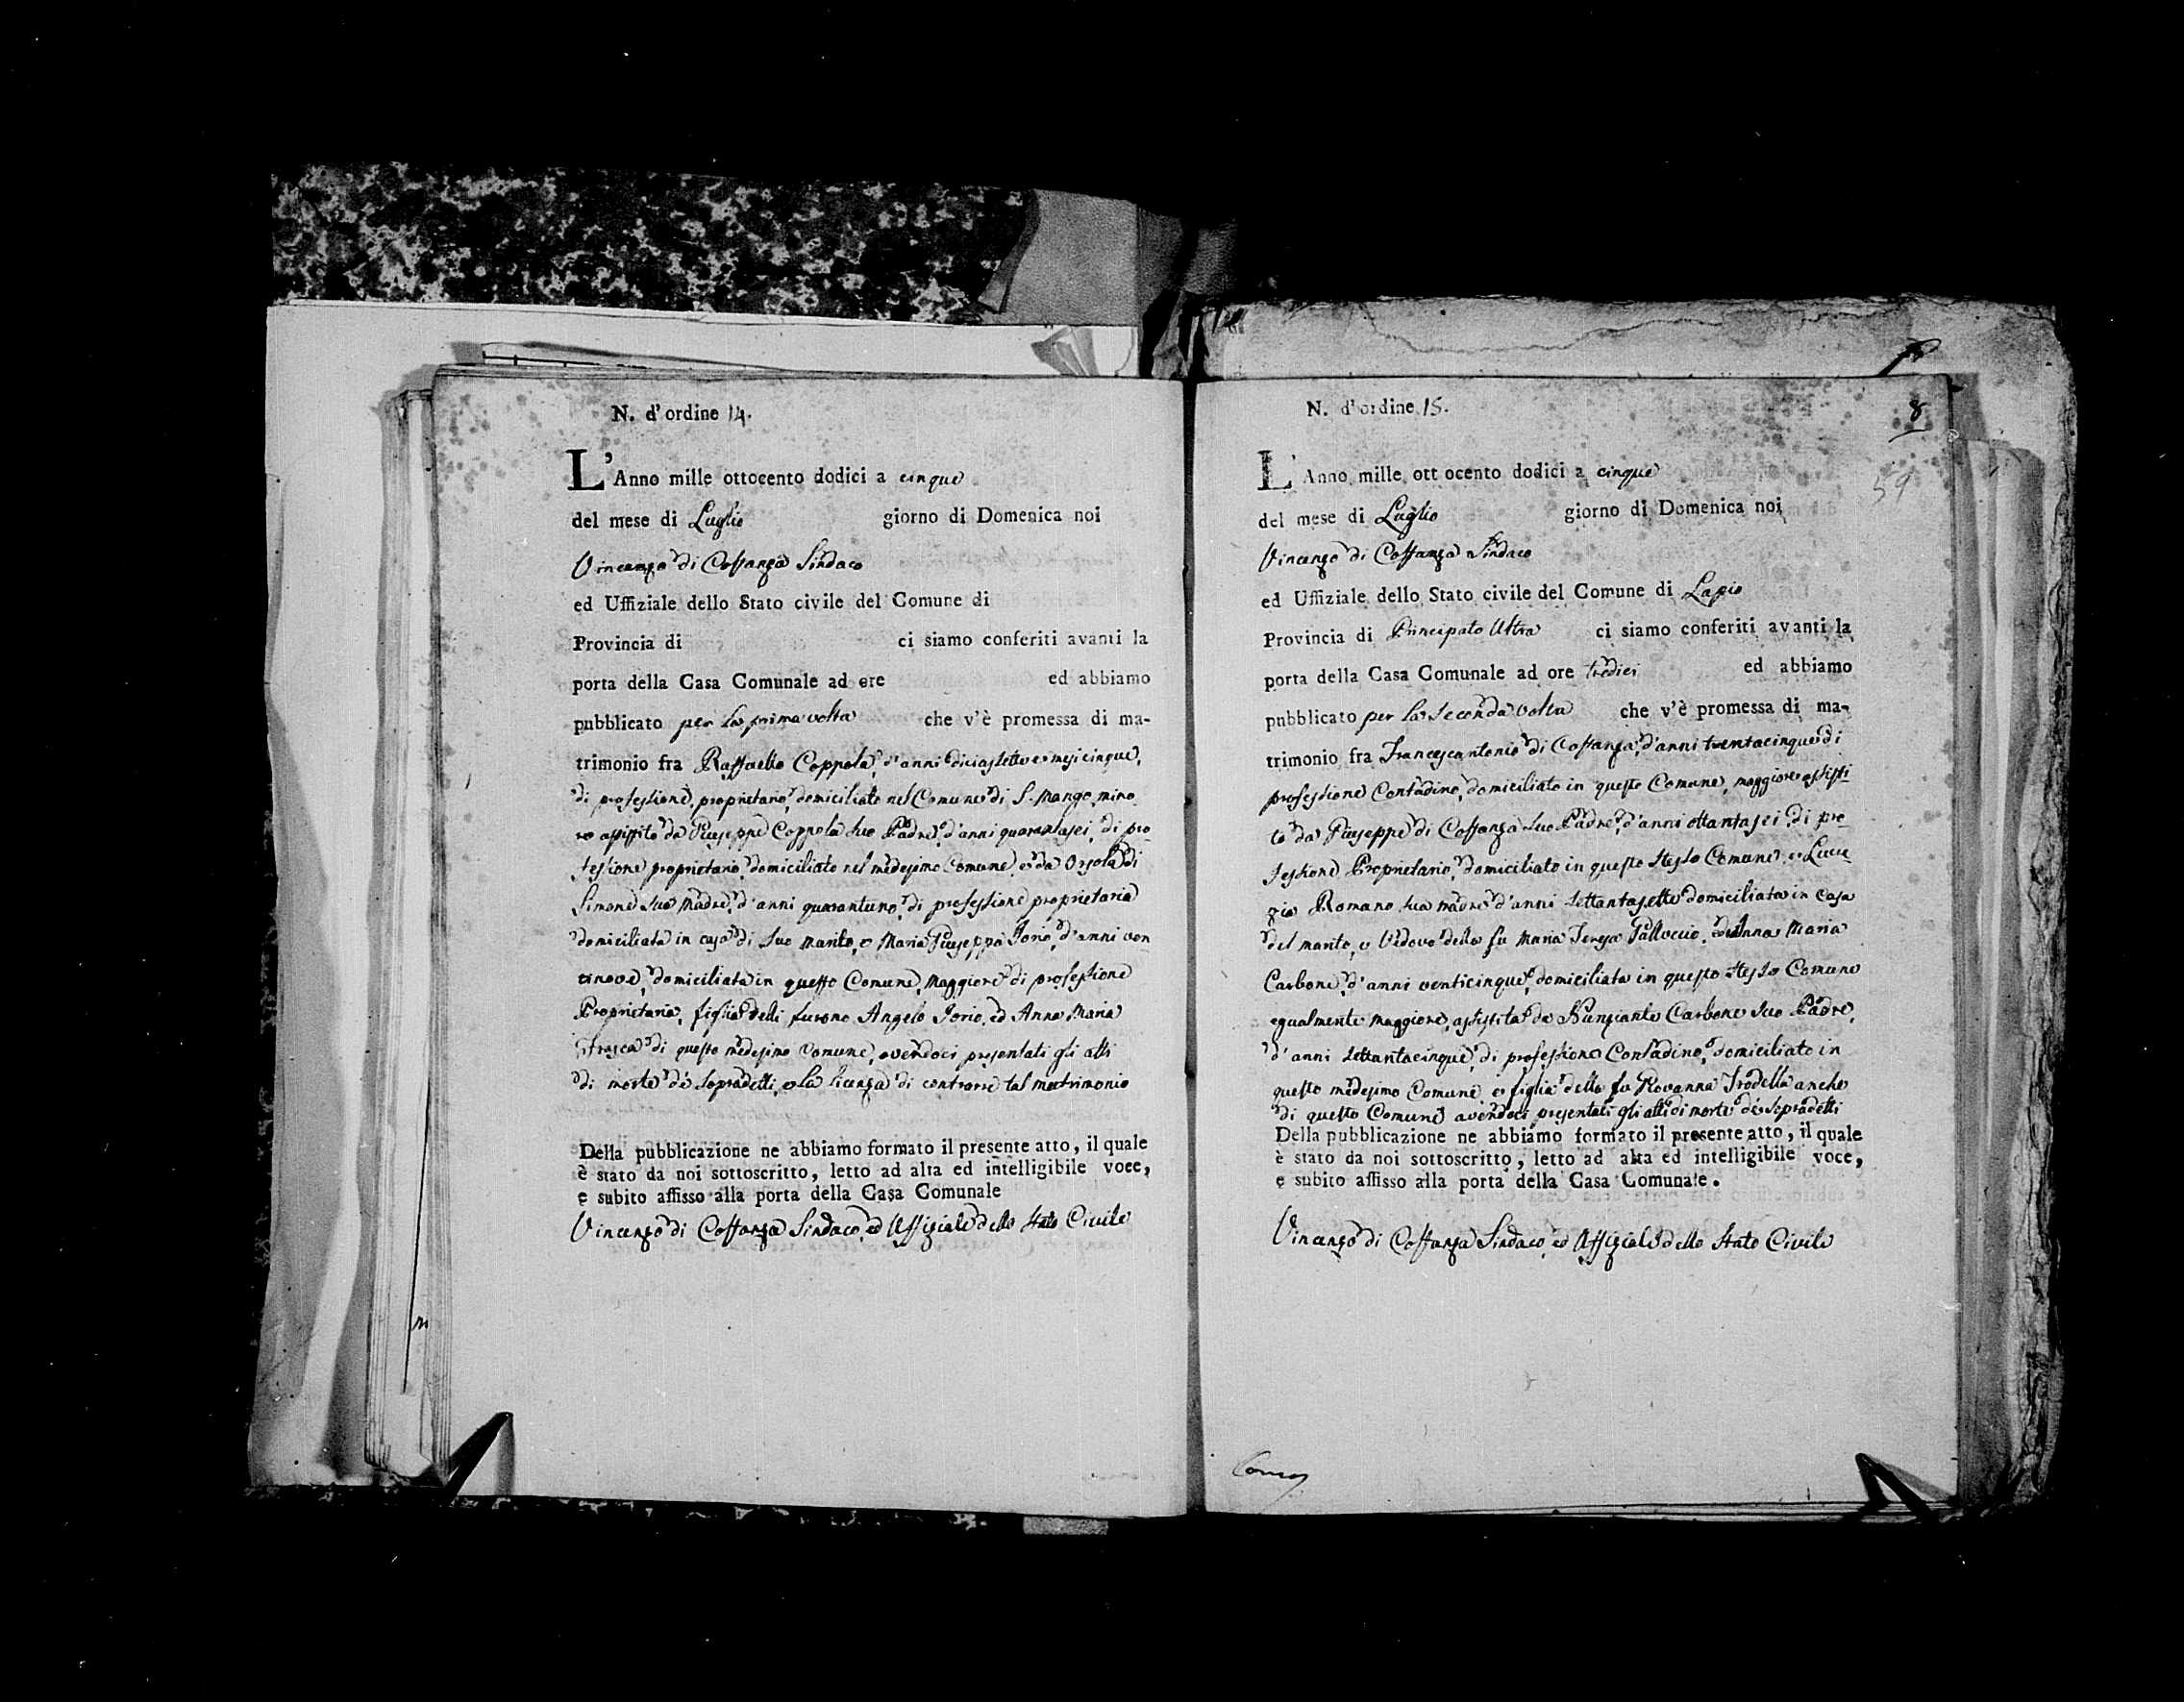 N. d'ordine 14.
L'Anno mille ottocento dodici a cinque
del mese di Luglio giorno di Domenica noi
Vincenzo di Costanza Sindaco
ed Uffiziale dello Stato civile del Comune di
Provincia di ci siamo conferiti avanti la
porta della Casa Comunale ad ore ed abbiamo
pubblicato per la prima volta che v'è promessa di ma-
trimonio fra Raffaello Coppola, d'anni diciasette e mesi cinque,
di professione, proprietario, domiciliato nel Comune di S. Mango, mino
re assistito da Giuseppe Coppola suo Padre, d'anni quarantasei, di pro
fessione proprietario, domiciliato nel medesimo Comune, e da Orsola di
Simone sua Madre, d'anni quarantuno, di professione proprietaria
domiciliata in casa di suo marito, e Maria Giuseppa Iorio, d'anni ven
tinove, domiciliata in questo Comune, maggiore di professione
Proprietaria, figlia delli furono Angelo Iorio, ed Anna Maria
di questo medesimo Comune, avendoci presentati gli atti
di morte de' sopradetti, e la licenza di contrarre tal matrimonio
Della pubblicazione ne abbiamo formato il presente atto, il quale
è stato da noi sottoscritto, letto ad alta ed intelligibile voce,
e subito affisso alla porta della Casa Comunale
Vincenzo di Costanza Sindaco, ed Uffiziale dello Stato Civile
N. d'ordine 15.
8
59
L'Anno mille ottocento dodici a cinque
del mese di Luglio giorno di Domenica noi
Vincenzo di Costanza Sindaco
ed Uffiziale dello Stato civile del Comune di Lapio
Provincia di Principato Ultra ci siamo conferiti avanti la
porta della Casa Comunale ad ore tredici ed abbiamo
pubblicato per la seconda volta che v'è promessa di ma-
trimonio fra Francescantonio di Costanza, d'anni trentacinque di
professione Contadino, domiciliato in questo Comune, maggiore assisti
to da Giuseppe di Costanza suo Padre, d'anni ottantasei, di pro-
fessione Proprietario, domiciliato in questo stesso Comune, e Lucre
zia Romano sua madre d'anni settantasette domiciliata in casa
del marito, e Vedovo della fu Maria Teresa ed Anna Maria
Carbone, d'anni venticinque, domiciliata in questo stesso Comune
egualmente maggiore, assistita da Nunziante Carbone suo Padre,
d'anni settantacinque, di professione Contadino, domiciliato in
questo medesimo Comune, e figlia della fu Rovanna Trodella anche
di questo Comune avendoci presentati gli atti di morte de' sopradetti
Della pubblicazione ne abbiamo formato il presente atto, il quale
è stato da noi sottoscritto, letto ad alta ed intelligibile voce,
e subito affisso alla porta della Casa Comunale.
Vincenzo di Costanza Sindaco, ed Uffiziale dello Stato Civile